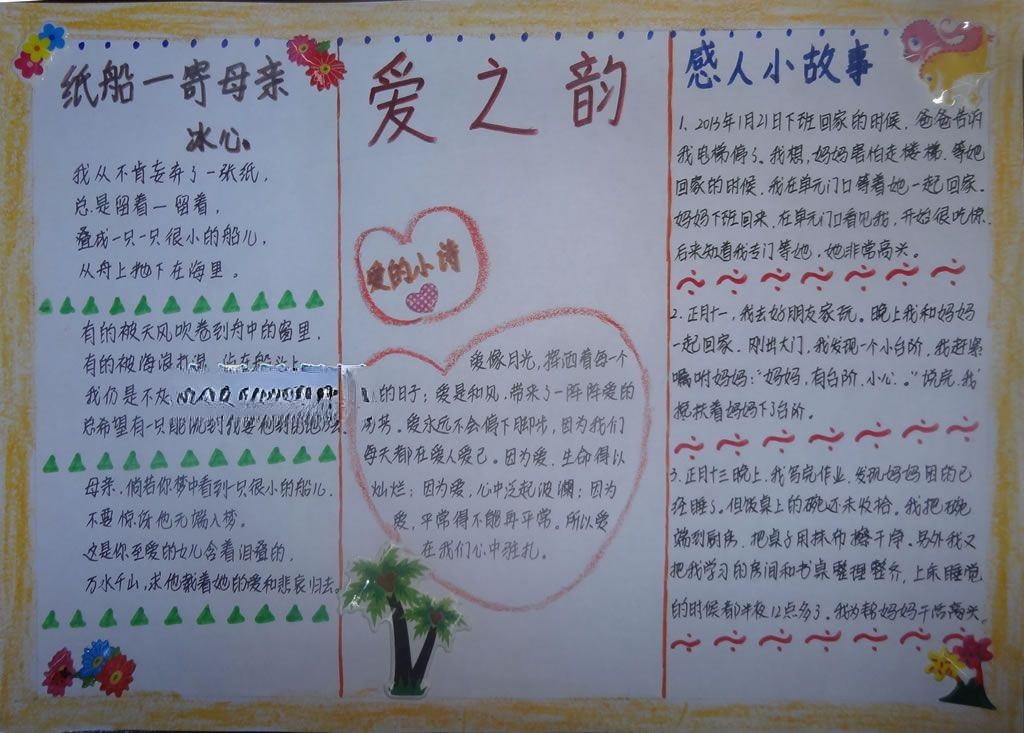 纸船一寄母亲
冰心、
我从不肯妄弃了一张纸，
总是留着一留着，
叠成一只一只很小的船儿，
从舟上抛下在海里。
有的被天风吹卷到舟中的窗里，
有的被海浪打湿，沾在船头上
我仍是不灰
总希望有一只能流到我要到的地方去
母亲，倘若你梦中看到一只很小的船儿，
不要惊讶他无端入梦。
这是你至爱的女儿含着泪叠的，
万水千山，求他载着她的爱和悲哀归去。
爱之韵
爱的小诗
爱像月光，挥洒着每一个
的日子；爱是和风，带来了一阵阵爱的
芬芳。爱永远不会停下脚步，因为我们
每天都在爱人爱己。因为爱，生命得以
灿烂；因为爱，心中泛起波澜；因为
爱，平常得不能再平常。所以爱
在我们心中驻扎。
感人小故事
1、2013年1月21日下班回家的时候，爸爸告诉
我电梯停了。我想，妈妈害怕走楼梯，等她
回家的时候，我在单元门口等着她一起回家。
妈妈下班回来，在单元门口看见我，开始很吃惊，
后来知道我专门等她，她非常高兴。
2、正月十一，我去好朋友家玩。晚上我和妈妈
一起回家，刚出大门，我发现一个小台阶，我赶紧
嘱咐妈妈：“妈妈，有台阶，小心。”说完，我
搀扶着妈妈下了台阶。
3、正月十三晚上，我写完作业，发现妈妈困的已
经睡了。但饭桌上的碗还未收拾。我把碗
端到厨房，把桌子用抹布擦干净。另外我又
把我学习的房间和书桌整理整齐，上床睡觉
的时候都半夜12点多了。我为帮妈妈干活高兴。